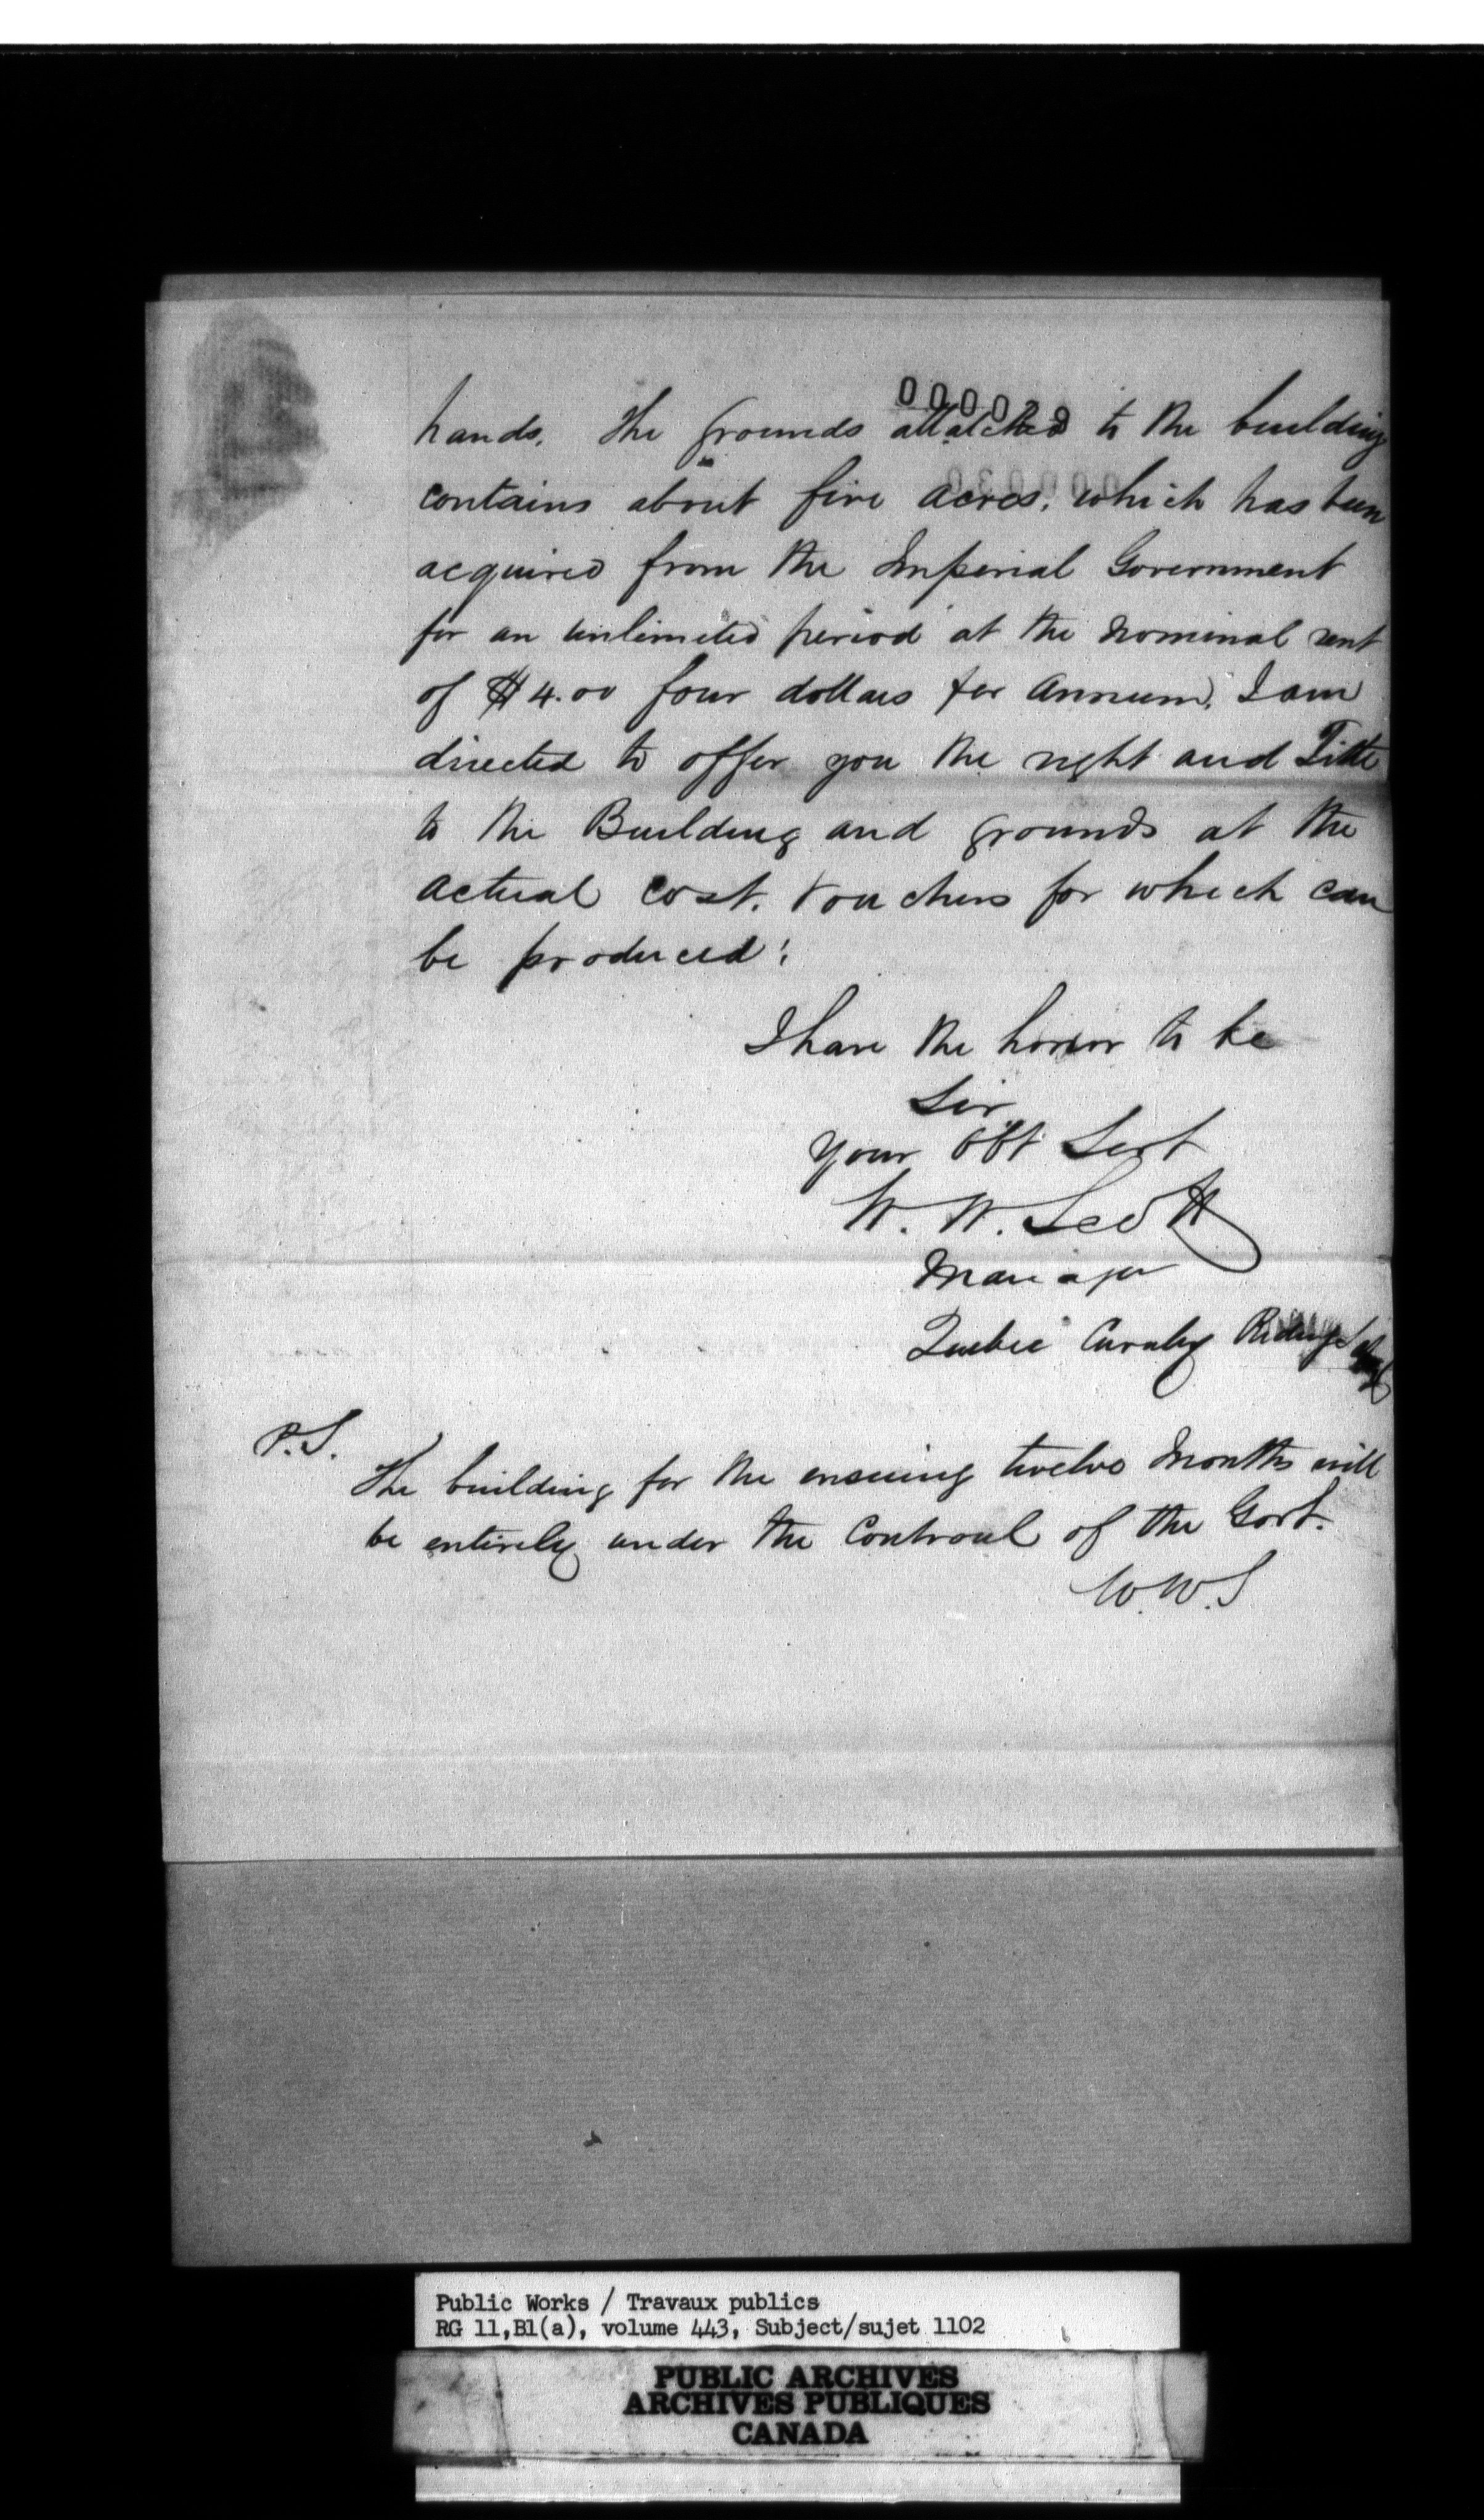 000029
hands. The grounds attatched to the building
contains about five acres, which has been
acquired from the Imperial Government
for an unlimited period at the nominal rent
of $4.00 four dollars per Annum, I am
directed to offer you the right and Title
to the Building and grounds at the
actual cost. Vouchers for which can
be produced;
I have the honor to be
Sir
Your Obt Servt
W. W. Scott
Manager
Quebec Cavalry Riding
P.S.
The building for the ensuing twelve Months will
be entirely under the Controul of the Govt.
W.W.S
Public Works / Travaux publics
RG 11,B1(a), volume 443, Subject/sujet 1102
PUBLIC ARCHIVES
ARCHIVES PUBLIQUES
CANADA